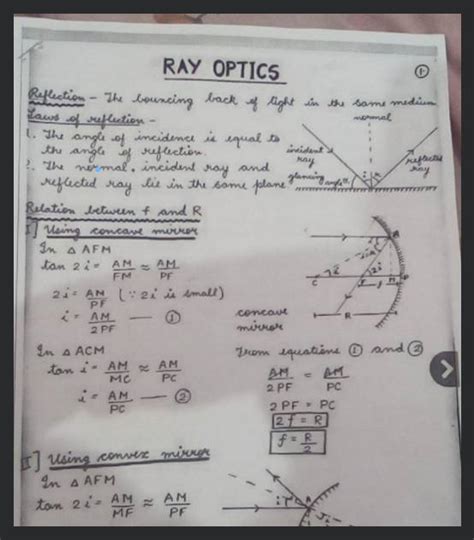 RAY OPTICS
1
Reflection - The bouncing back of light in the same medium
Laws of reflection -
1. The angle of incidence is equal to
the angle of reflection.
2. The normal, incident ray and
reflected ray lie in the same plane
normal
incident
ray
reflected
ray
glancing
angle
i
r
Relation between f and R
I] Using concave mirror
In △ AFM
tan 2i = AM/FM ≈ AM/PF
2i = AM/PF (∵ 2i is small)
i = AM/2PF — ①
C
i
2i
A
F
M
P
f
R
concave
mirror
In △ ACM
tan i = AM/MC ≈ AM/PC
i = AM/PC — ②
From equations ① and ②
AM/2PF = AM/PC
2PF = PC
2f = R
f = R/2
II] Using convex mirror
In △ AFM
tan 2i = AM/MF ≈ AM/PF
i
r
A
i